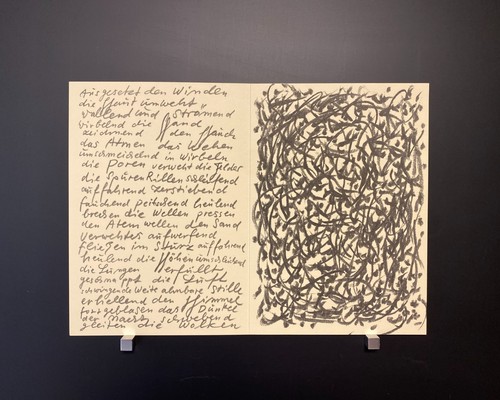 Ausgesetzt den Winden
die Haut umweht
wallend und strömend
wirbelnd die Hand
zeichnend den Hauch
das Atmen das Wehen
umschmeichelnd in Wirbeln
die Poren verweht die Felder
die Spuren Rillen schleifend
auffahrend zerstiebend
fauchend peitschend heulend
brechen die Wellen pressen
den Atem wellen den Sand
verwehtes aufwerfend
fließen im Sturz auffahrend
heulend die Höhen umschleifend
die Lungen erfüllt
geschnappt die Luft
schwingende Weite ahnbare Stille
erhellend den Himmel
fortgeblasen das Dunkel
der Nacht schwebend
gleiten die Wolken